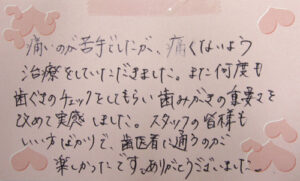 痛いのが苦手でしたが、痛くないよう
治療をしていただきました。また何度も
歯ぐきのチェックをしてもらい歯みがきの重要さを
改めて実感しました。スタッフの皆様も
いい方ばかりで、歯医者に通うのが
楽しかったです。ありがとうございました。